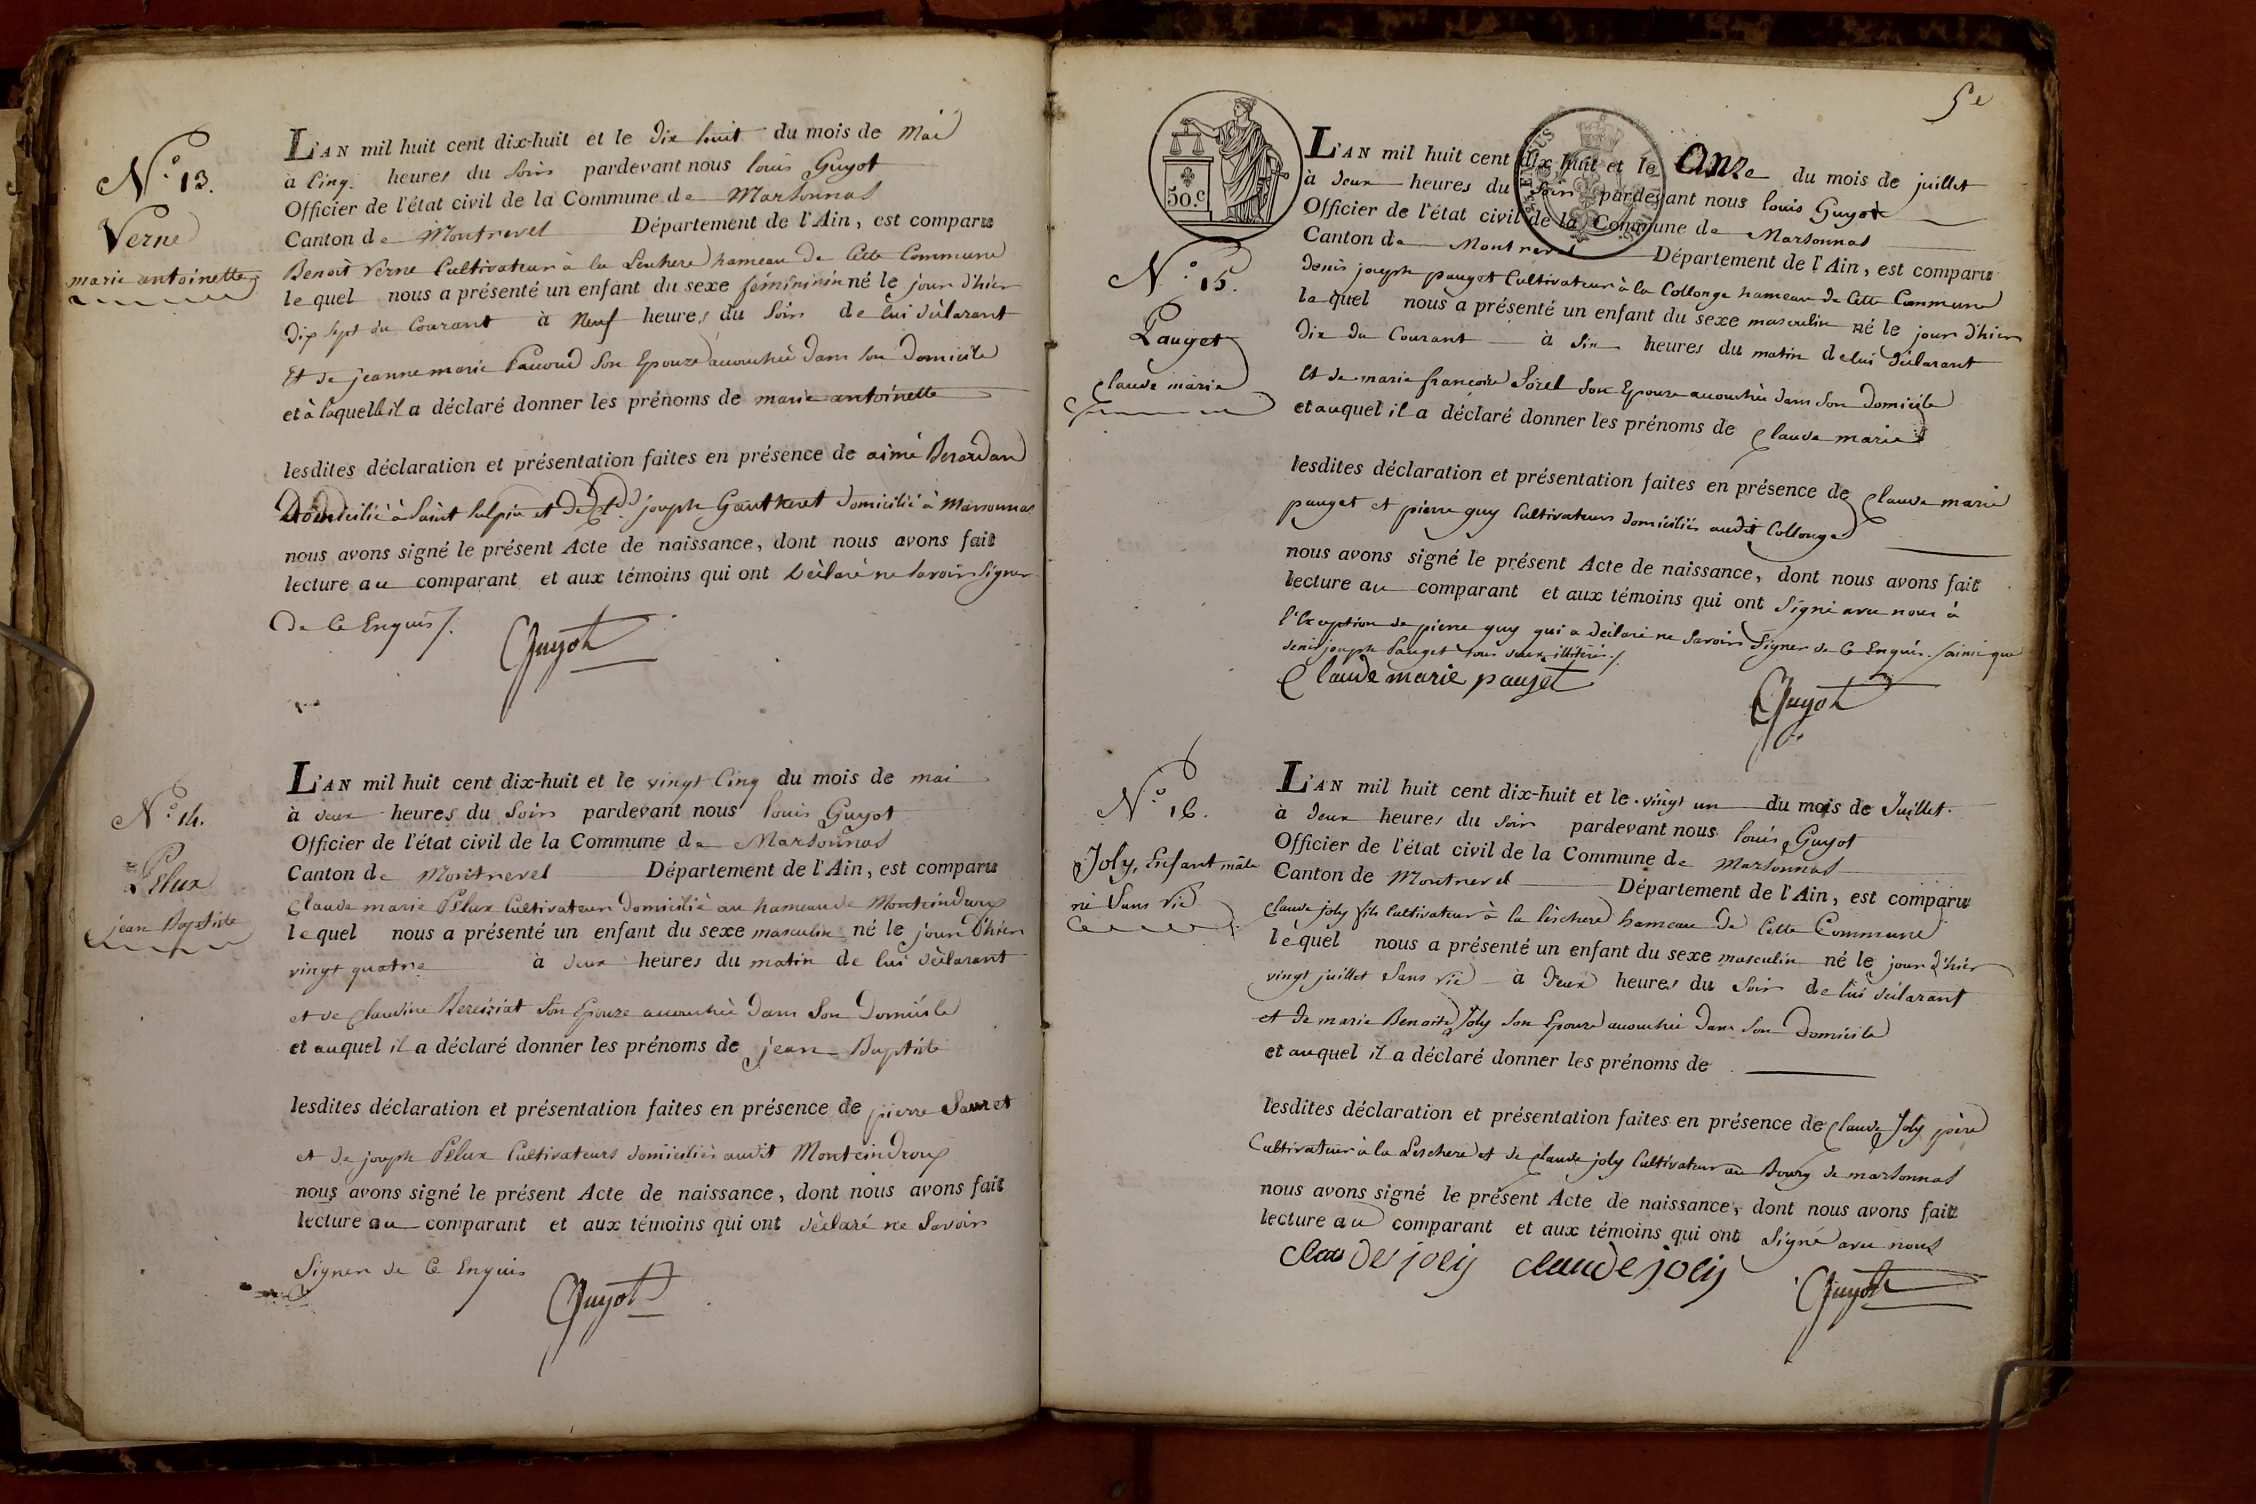 N.° 13.
Verne
marie antoinette
L'AN mil huit cent dix-huit et le dix huit du mois de Mai
à Cinq heures du Soir pardevant nous louis Guyot
Officier de l'état civil de la Commune de Marsonnas
Canton de Montrevel Département de l'Ain, est comparu
Benoit Verne Cultivateur à la Leschere hameau de Cette Commune
lequel nous a présenté un enfant du sexe fémininin né le jour d'hier
dix sept du Courant à Neuf heures du Soir de lui déclarant
Et de jeanne marie Pauoud Son Epouze accouchée dans son Domicile
et à laquelle il a déclaré donner les prénoms de marie antoinette
lesdites déclaration et présentation faites en présence de aimé Berardan
Domicilié à Saint Sulpice et de joseph Gautheret domicilié à Marsonnas
nous avons signé le présent Acte de naissance, dont nous avons fait
lecture au comparant et aux témoins qui ont Déclaré ne Savoir Signer
de Ce Enquis /.
Guyot
N.° 14.
Pélux
jean Baptiste
L'AN mil huit cent dix-huit et le vingt Cinq du mois de mai
à deux heures du Soir pardevant nous louis Guyot
Officier de l'état civil de la Commune de Marsonnas
Canton de Montrevel Département de l'Ain, est comparu
Claude marie Pélux Cultivateur domicilié au hameau de Monteindroux
lequel nous a présenté un enfant du sexe masculin né le jour d'hier
vingt quatre à deux heures du matin de lui déclarant
et de Claudine Bereiziat Son Epouze accouchée dans Son Domicile
et auquel il a déclaré donner les prénoms de jean Baptiste
lesdites déclaration et présentation faites en présence de pierre Sauret
et de joseph Pélux Cultivateurs domiciliés audit Monteindroux
nous avons signé le présent Acte de naissance, dont nous avons fait
lecture au comparant et aux témoins qui ont déclaré ne Savoir
Signer de Ce Enquis
Guyot
5e
50.c
N.° 15.
Pauget
Claude marie
L'AN mil huit cent dix-huit et le Onze du mois de juillet
à deux heures du Soir pardevant nous louis Guyot
Officier de l'état civil de la Commune de Marsonnas
Canton de Montrevel Département de l'Ain, est comparu
denis joseph pauget Cultivateur à la Collonge hameau de Cette Commune
lequel nous a présenté un enfant du sexe masculin né le jour d'hier
Dix du Courant à Six heures du matin de lui déclarant
Et de marie françoise Sorel Son Epouze accouchée dans Son Domicile
et auquel il a déclaré donner les prénoms de Claude marie
lesdites déclaration et présentation faites en présence de Claude marie
pauget et pierre guy Cultivateurs domiciliés audit Collonge
nous avons signé le présent Acte de naissance, dont nous avons fait
lecture au comparant et aux témoins qui ont Signé avec nous à
l'Exception de pierre guy qui a déclaré ne Savoir Signer de Ce Enquis. /ainsi que
denis joseph Pauget tous deux illitérés /.
Claude marie pauget
Guyot
N.° 16.
Joly, Enfant mâle
né Sans vie
L'AN mil huit cent dix-huit et le vingt un du mois de Juillet.
à deux heures du Soir pardevant nous louis Guyot
Officier de l'état civil de la Commune de Marsonnas
Canton de Montrevel Département de l'Ain, est comparu
Claude joly fils Cultivateur à la léschere hameau de Cette Commune
lequel nous a présenté un enfant du sexe masculin né le jour d'hier
vingt juillet Sans vie à deux heures du Soir de lui déclarant
et de marie Benoite Joly Son Epouze accouchée dans Son Domicile
et auquel il a déclaré donner les prénoms de
lesdites déclaration et présentation faites en présence de Claude Joly père
Cultivateur à la Leschere et de Claude joly Cultivateur au Bourg de marsonnas
nous avons signé le présent Acte de naissance, dont nous avons fait
lecture au comparant et aux témoins qui ont Signé avec nous
claudes joly claude joly
Guyot